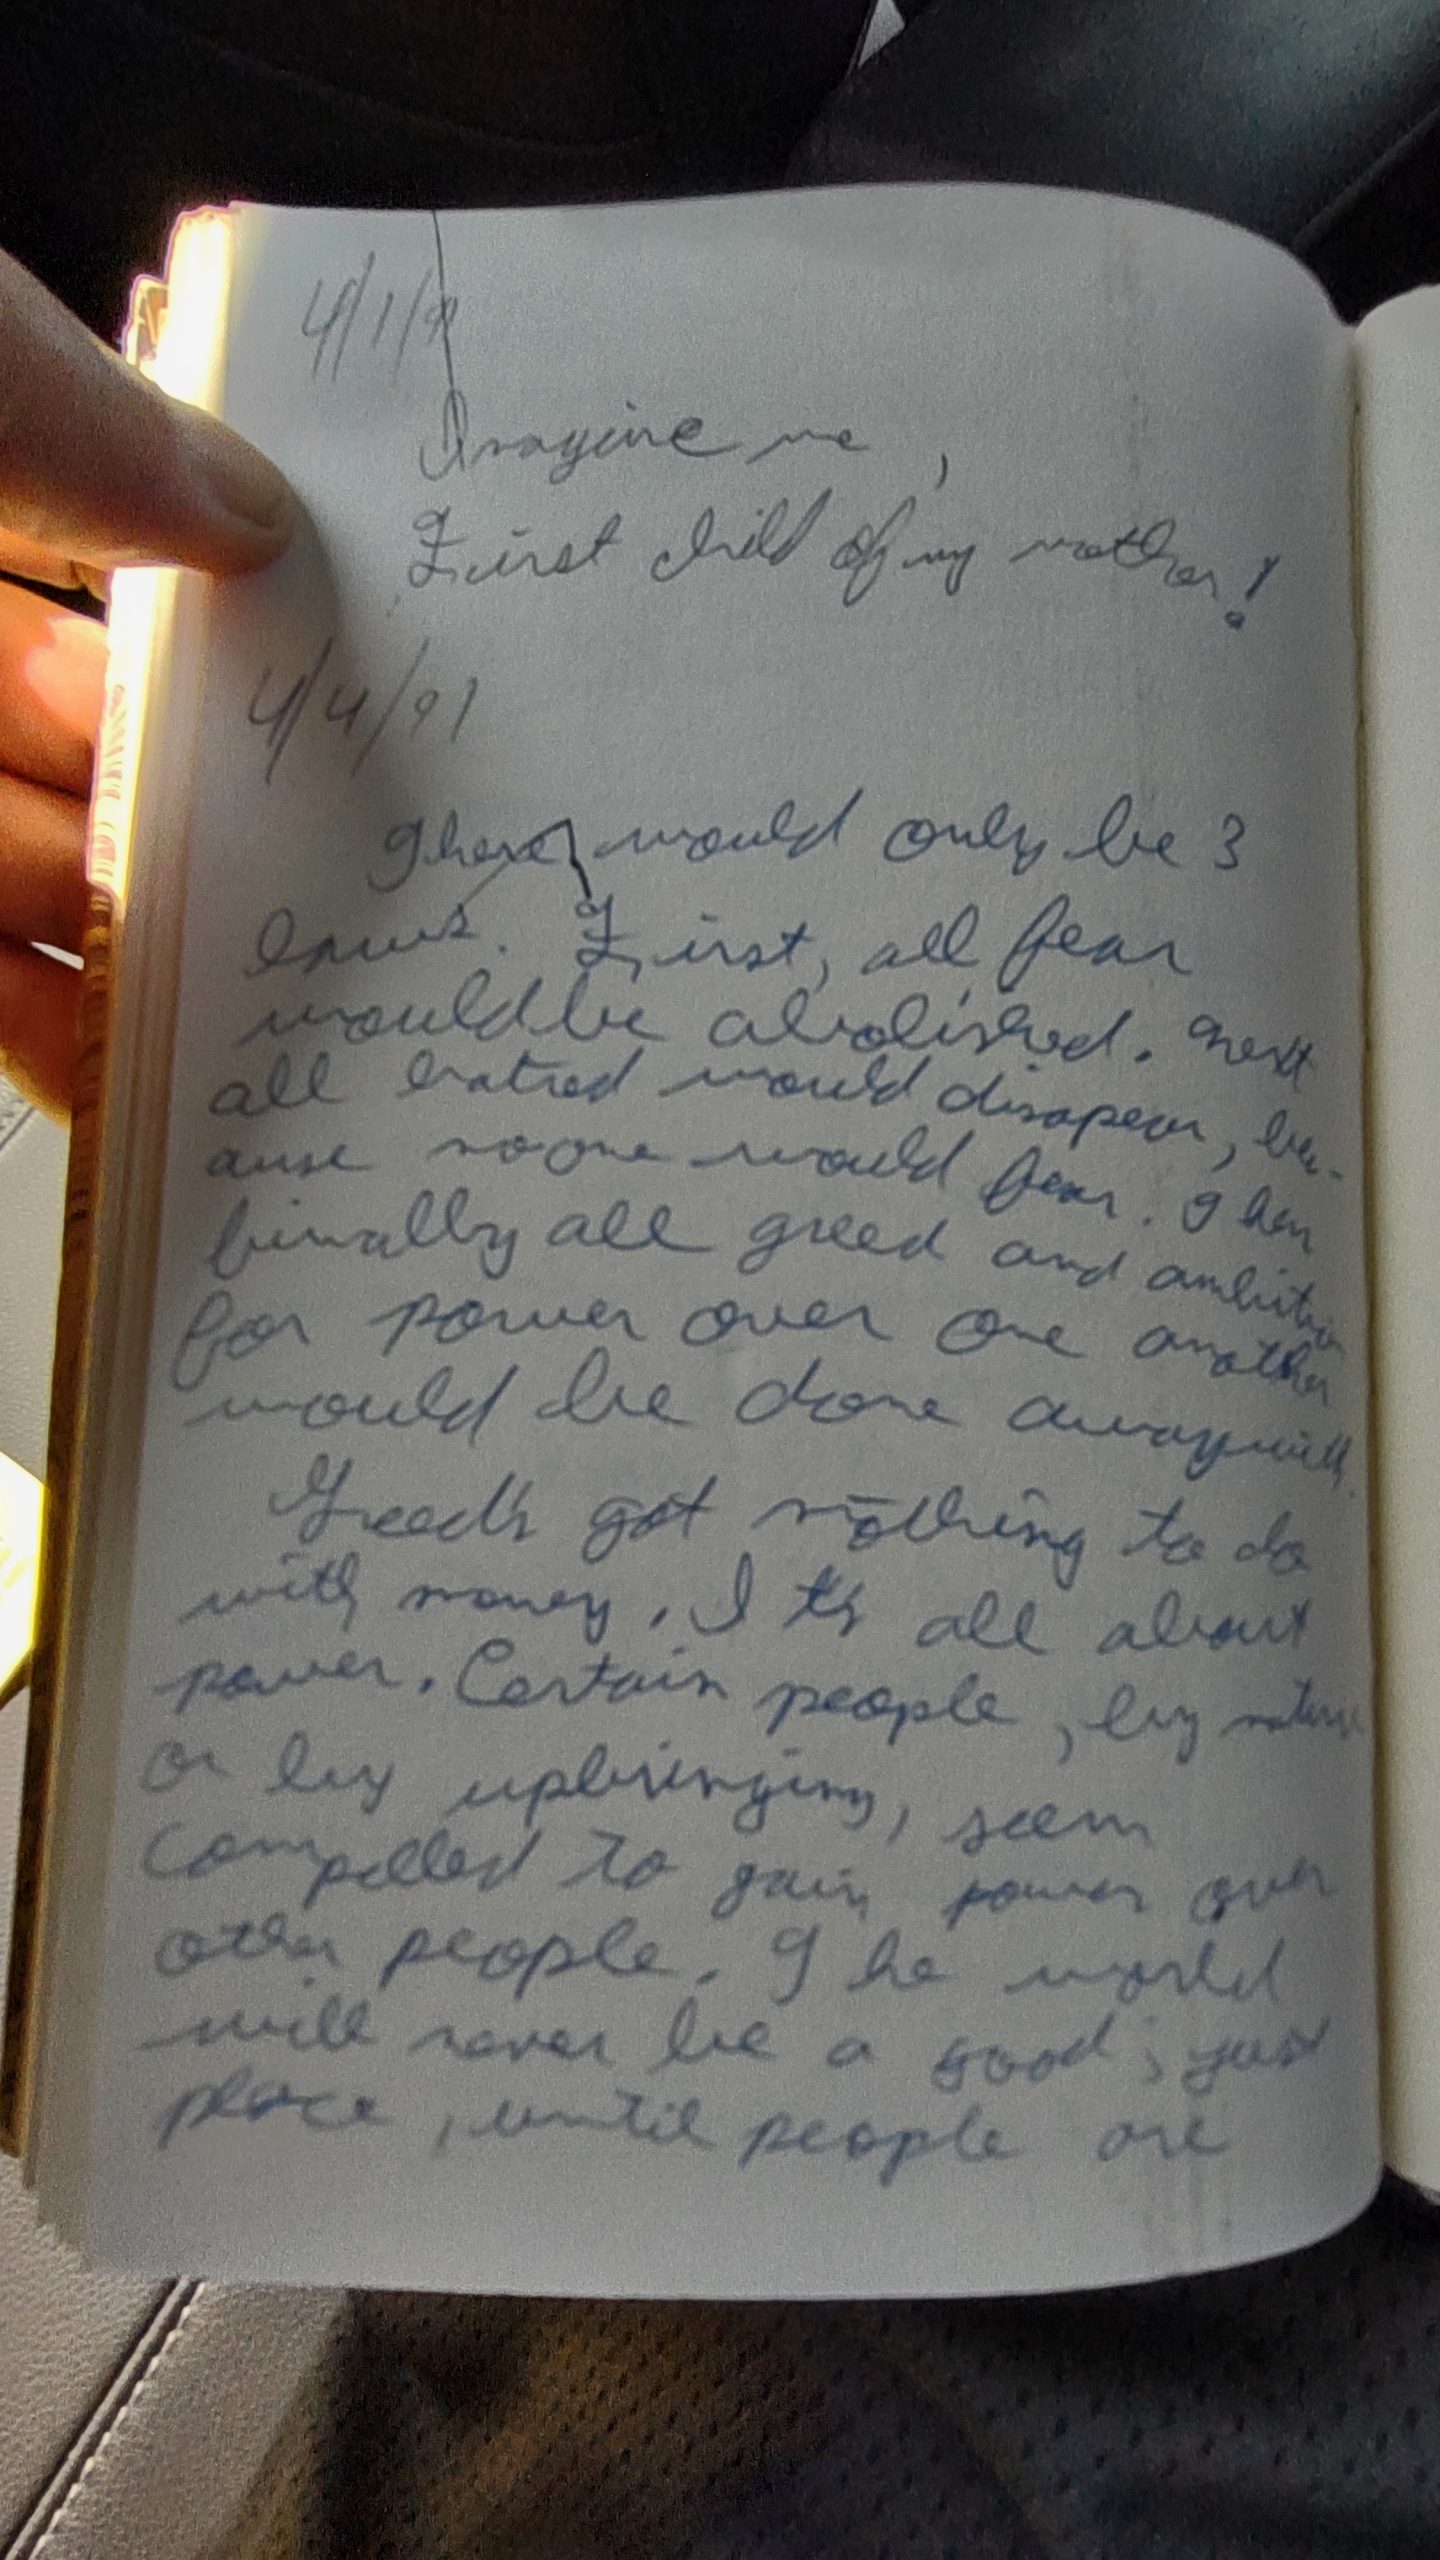 4/1/9
Imagine me,
First child of my mother!
4/4/91
There would only be 3
laws. First, all fear
would be abolished. Next
all hatred would disapear, bec-
ause noone would fear. Then
finally all greed and ambition
for power over one another
would be done away with.
Greed's got nothing to do
with money. It's all about
power. Certain people, by nature
or by upbringing, seem
compelled to gain power over
other people. The world
will never be a good, just
place, until people are